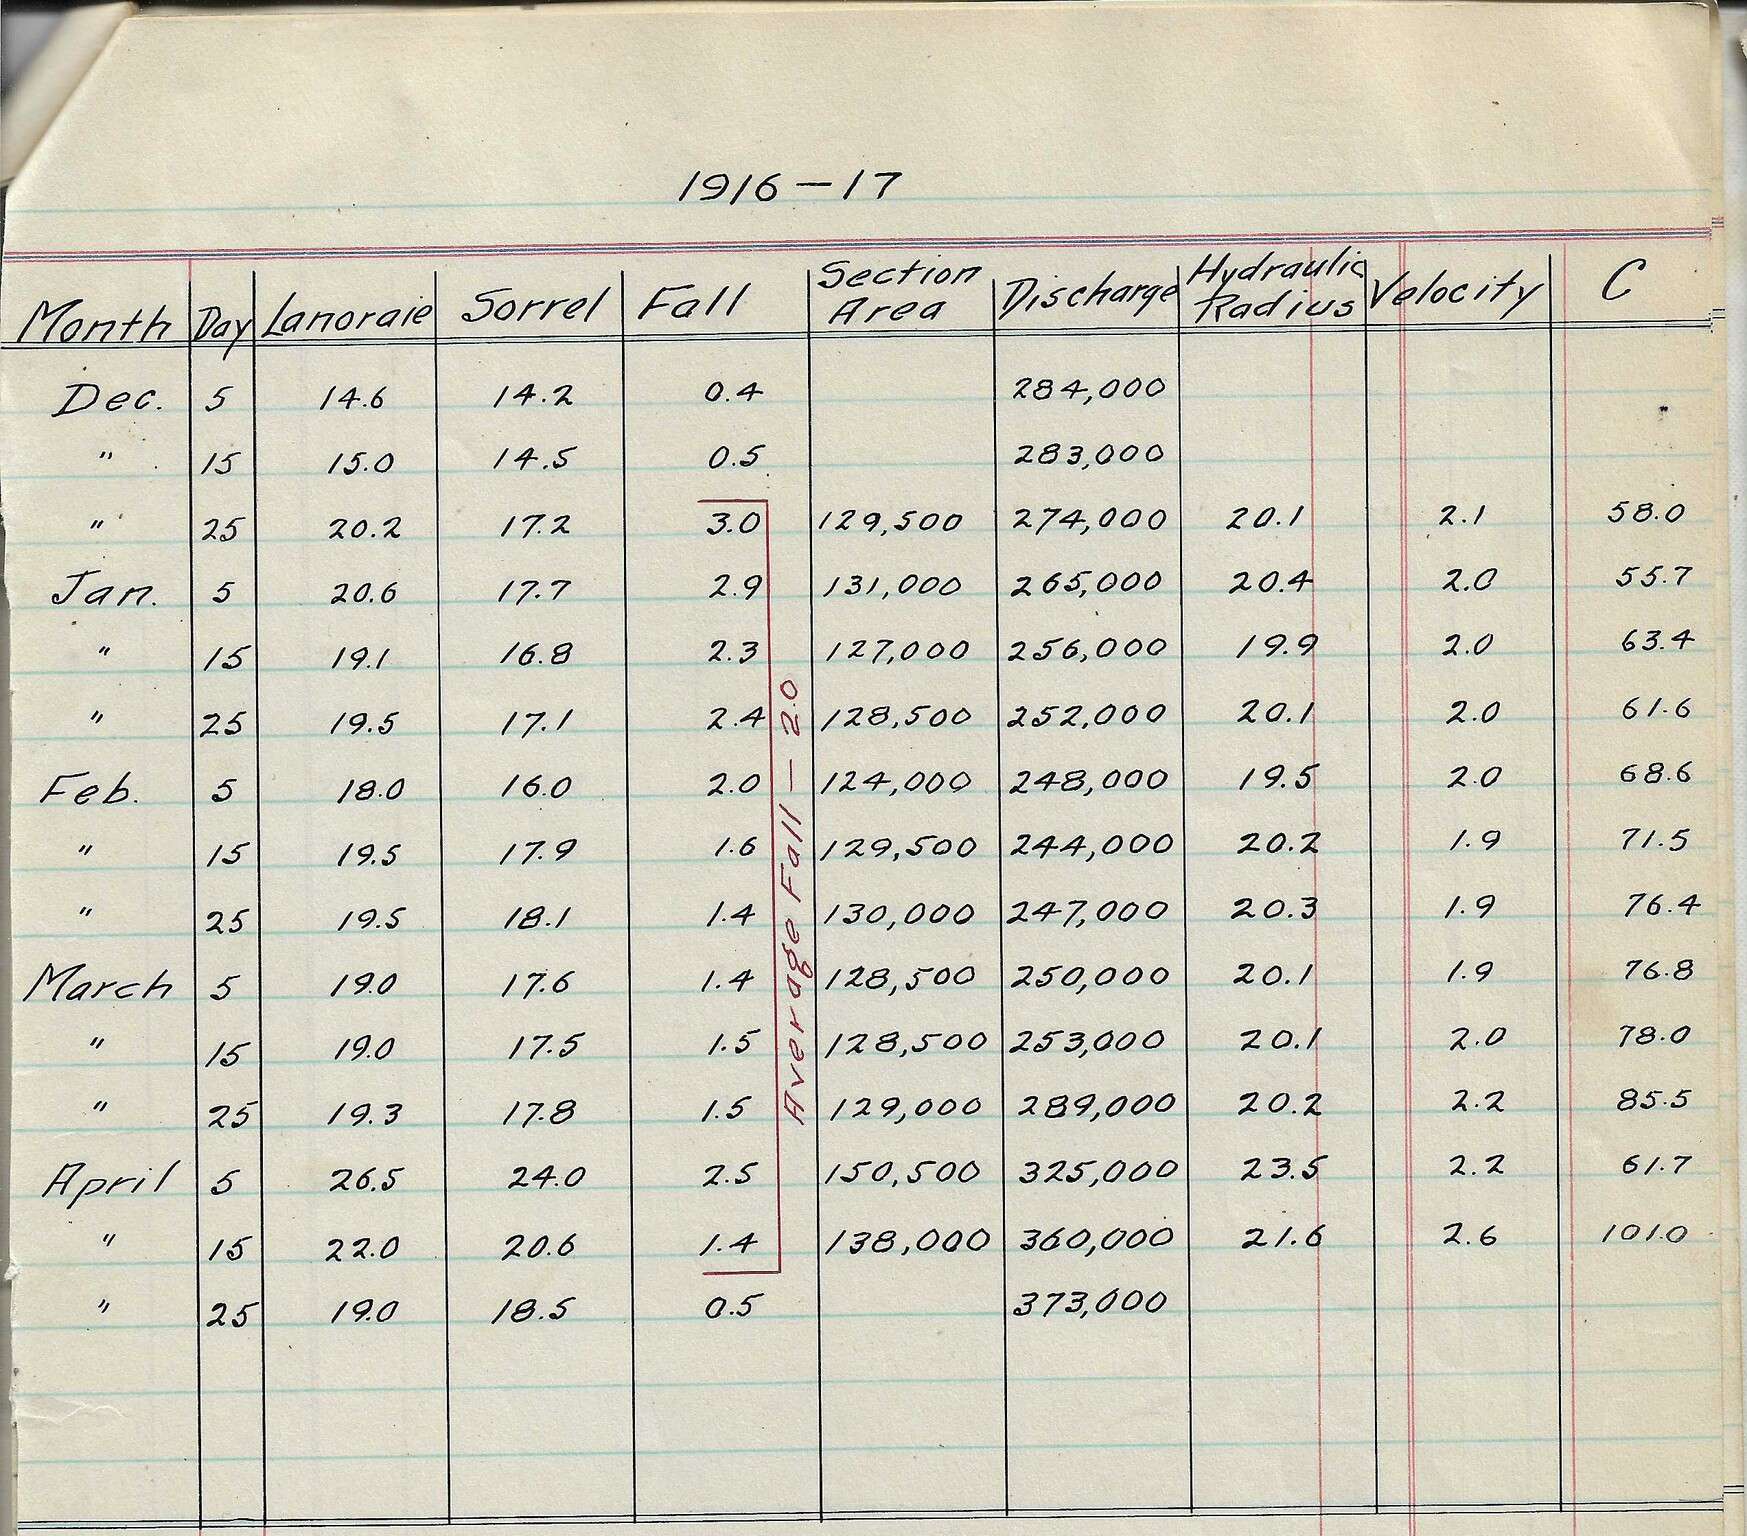 1916-17
Month Day Lanoraie Sorrel Fall Section Area Discharge Hydraulic Radius Velocity C
Dec. 5 14.6 14.2 0.4 284,000
" 15 15.0 14.5 0.5 283,000
" 25 20.2 17.2 3.0 129,500 274,000 20.1 2.1 58.0
Jan. 5 20.6 17.7 2.9 131,000 265,000 20.4 2.0 55.7
" 15 19.1 16.8 2.3 127,000 256,000 19.9 2.0 63.4
" 25 19.5 17.1 2.4 128,500 252,000 20.1 2.0 61.6
Feb. 5 18.0 16.0 2.0 124,000 248,000 19.5 2.0 68.6
" 15 19.5 17.9 1.6 129,500 244,000 20.2 1.9 71.5
" 25 19.5 18.1 1.4 130,000 247,000 20.3 1.9 76.4
March 5 19.0 17.6 1.4 128,500 250,000 20.1 1.9 76.8
" 15 19.0 17.5 1.5 128,500 253,000 20.1 2.0 78.0
" 25 19.3 17.8 1.5 129,000 289,000 20.2 2.2 85.5
April 5 26.5 24.0 2.5 150,500 325,000 23.5 2.2 61.7
" 15 22.0 20.6 1.4 138,000 360,000 21.6 2.6 101.0
" 25 19.0 18.5 0.5 373,000
Average Fall - 2.0